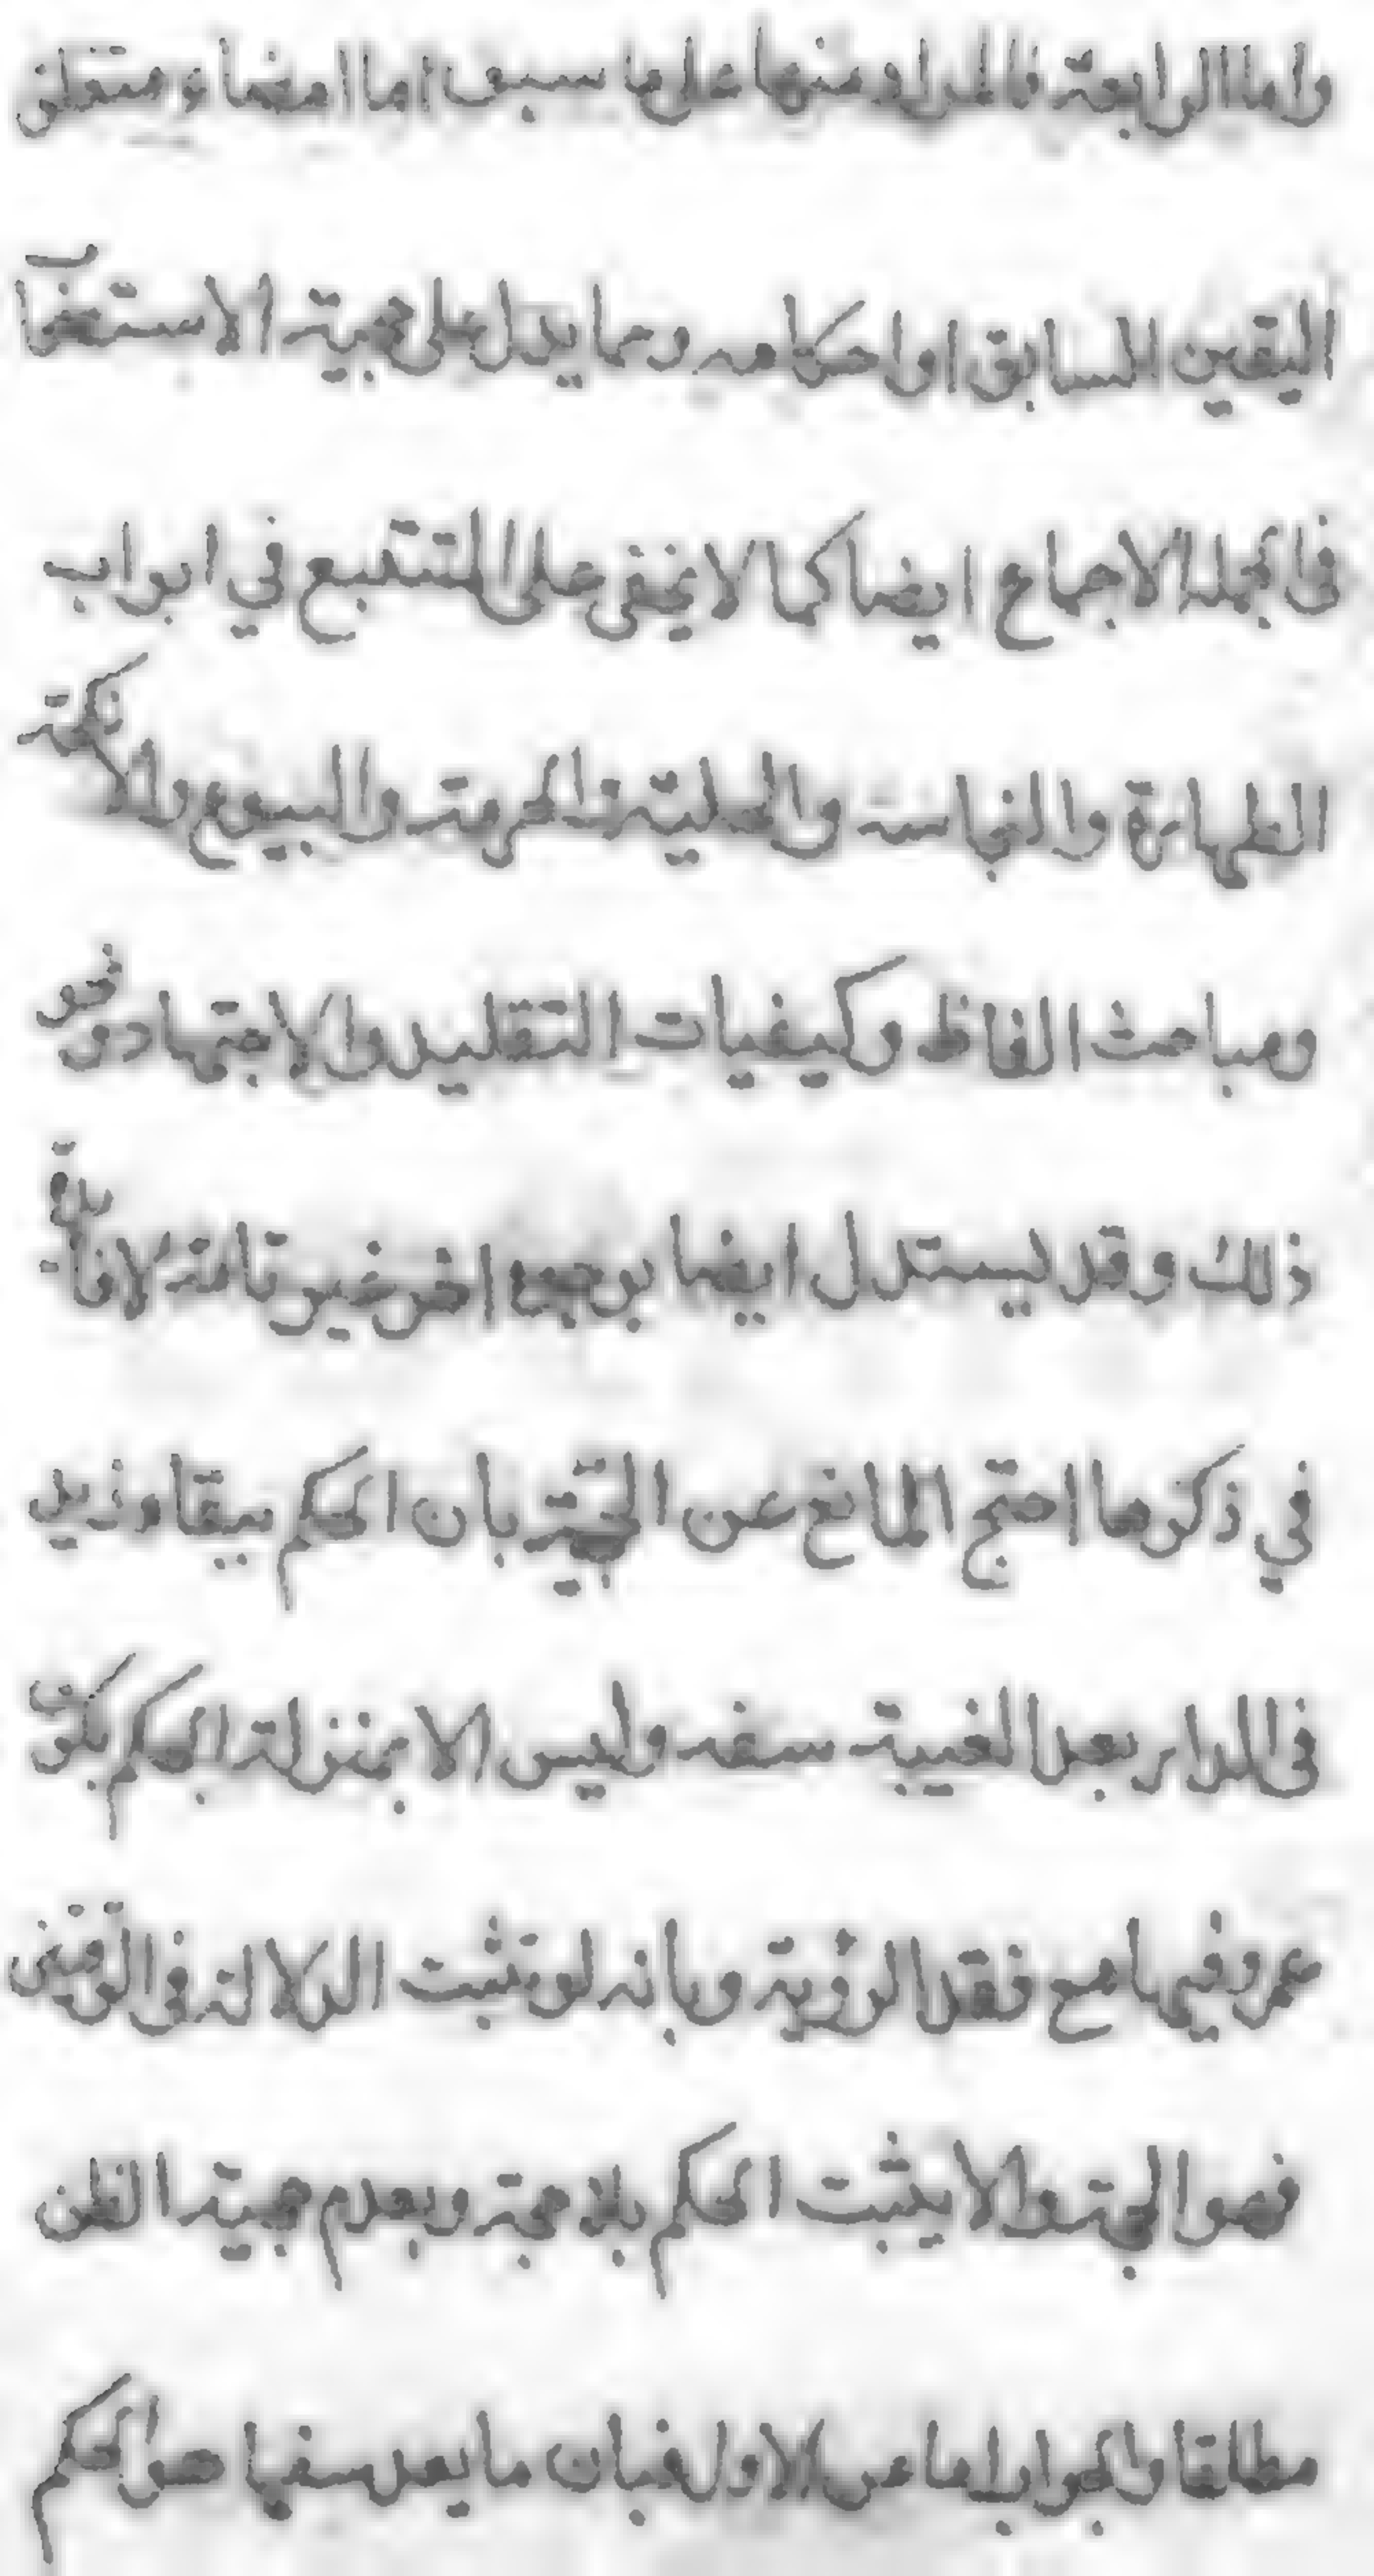 واما الرابعة فالمراد منها على ما سبق اما امضاء متعلق
اليقين السابق او احكامه ومما يدل على حجية الاستصحاب
في الجملة الاجماع ايضا كما لا يخفى على المتتبع في ابواب
الطهارة والنجاسة والحلية والحرمة والبيوع والانكحة
ومباحث الفاظ وكيفيات التقليد والاجتهاد ونحو
ذلك وقد يستدل ايضا بوجوه اخر غير تامة لا فائدة
في ذكرها احتج المانع عن الحجية بان الحكم ببقاء زيد
في الدار بعد الغيبة سفه وليس الا بمنزلة الحكم بكون
عمرو فيها مع فقد الرؤية وبانه لو تثبت الدلالة في الوقتين
فهو الحجة والا يثبت الحكم بلا حجة وبعدم حجية الظن
مطلقا والجواب اما عن الاول فبان ما يعد سفها هو الحكم